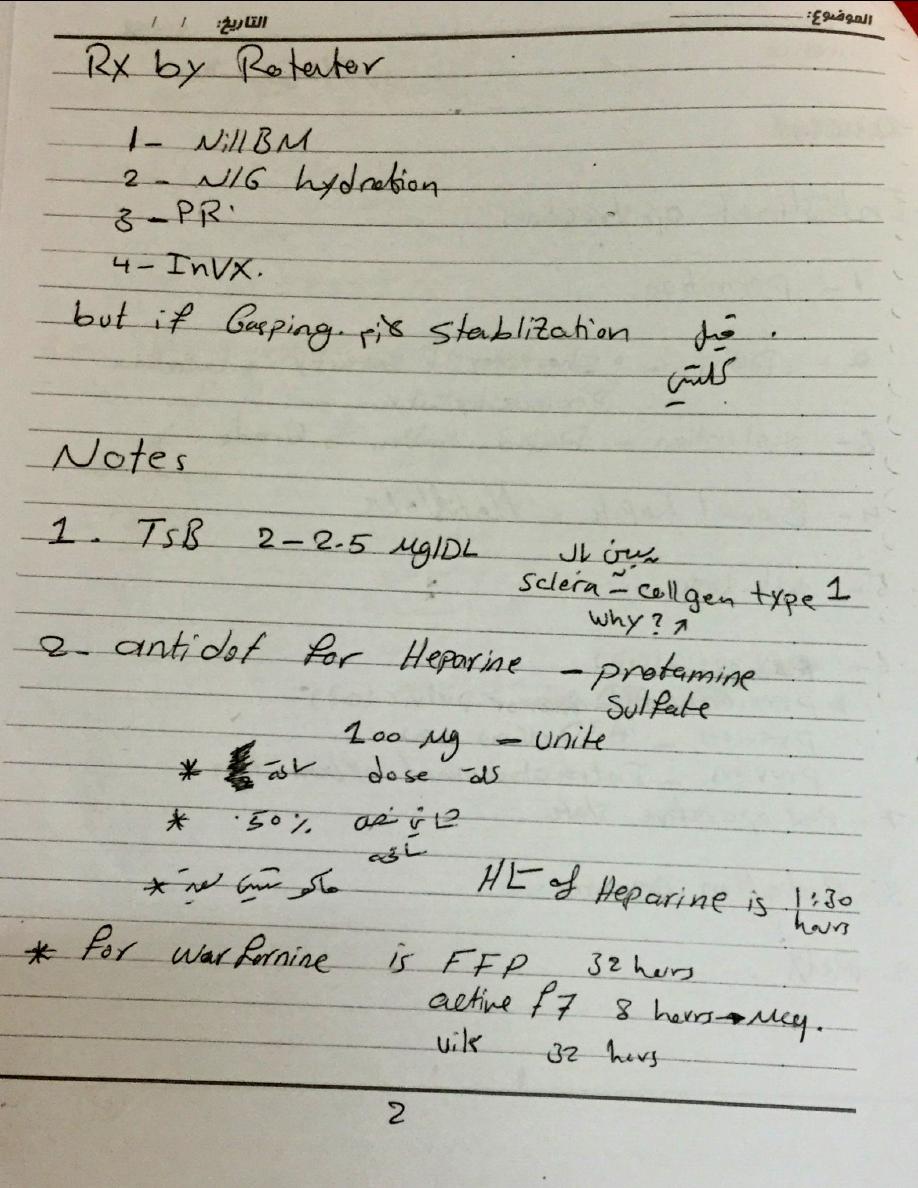 الموضوع: التاريخ: / /
Rx by Rotator
1- NillBM
2 - N/G hydration
3 - PR
4 - InVX.
but if Gasping. stablization قبل .
كلشي
Notes
1 . TSB 2-2.5 Mg/DL يبين بال
sclera - collgen type 1
why?
2- antidot for Heparine - protamine
Sulfate
100 Mg - unite
* dose
* 50%
* ماكو HL of Heparine is 1:30
hours
* for warfornine is FFP 32 hours
active f7 8 hours → Mcg.
vik 32 hours
2